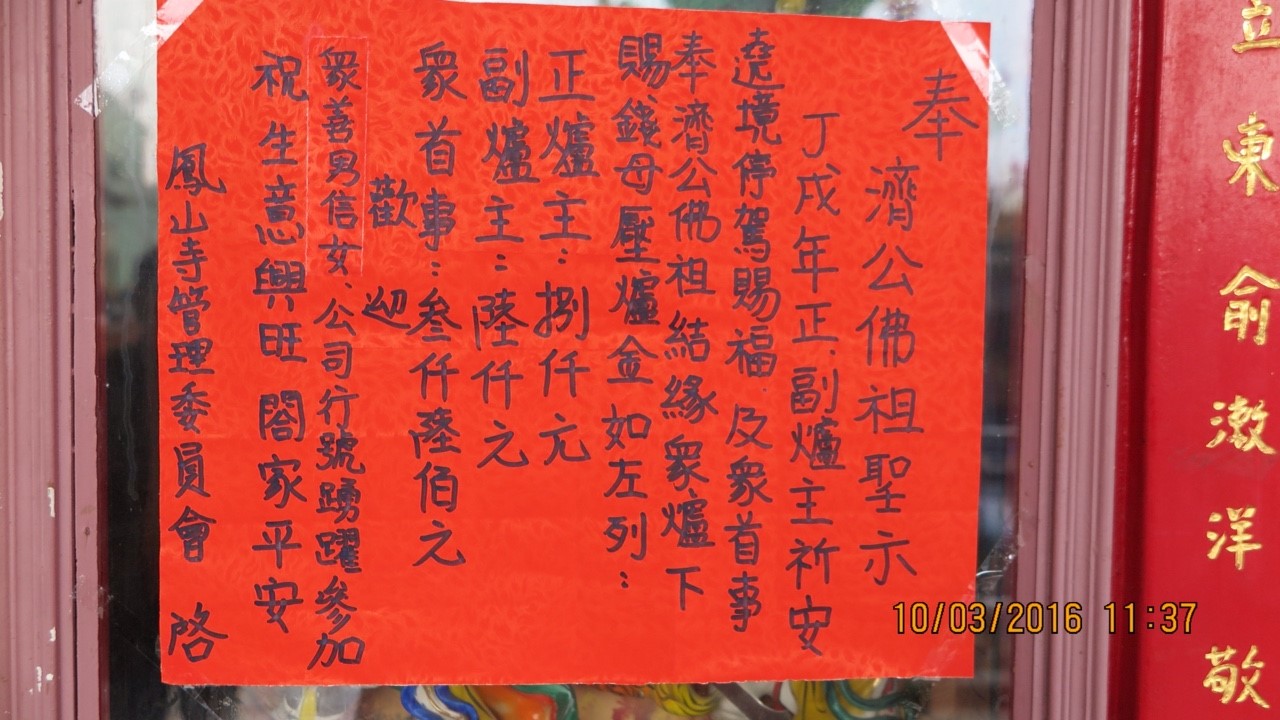 奉
濟公佛祖聖示
丁戌年正、副爐主祈安
遶境停駕賜福、及衆首事
奉濟公佛祖結緣衆爐下
賜錢母壓爐金如左列：
正爐主：捌仟元
副爐主：陸仟元
衆首事：叁仟陸佰元
歡迎
衆善男信女、公司行號踴躍參加
祝生意興旺閤家平安
鳳山寺管理委員會 啓
立東俞漵洋敬
10/03/2016 11:37